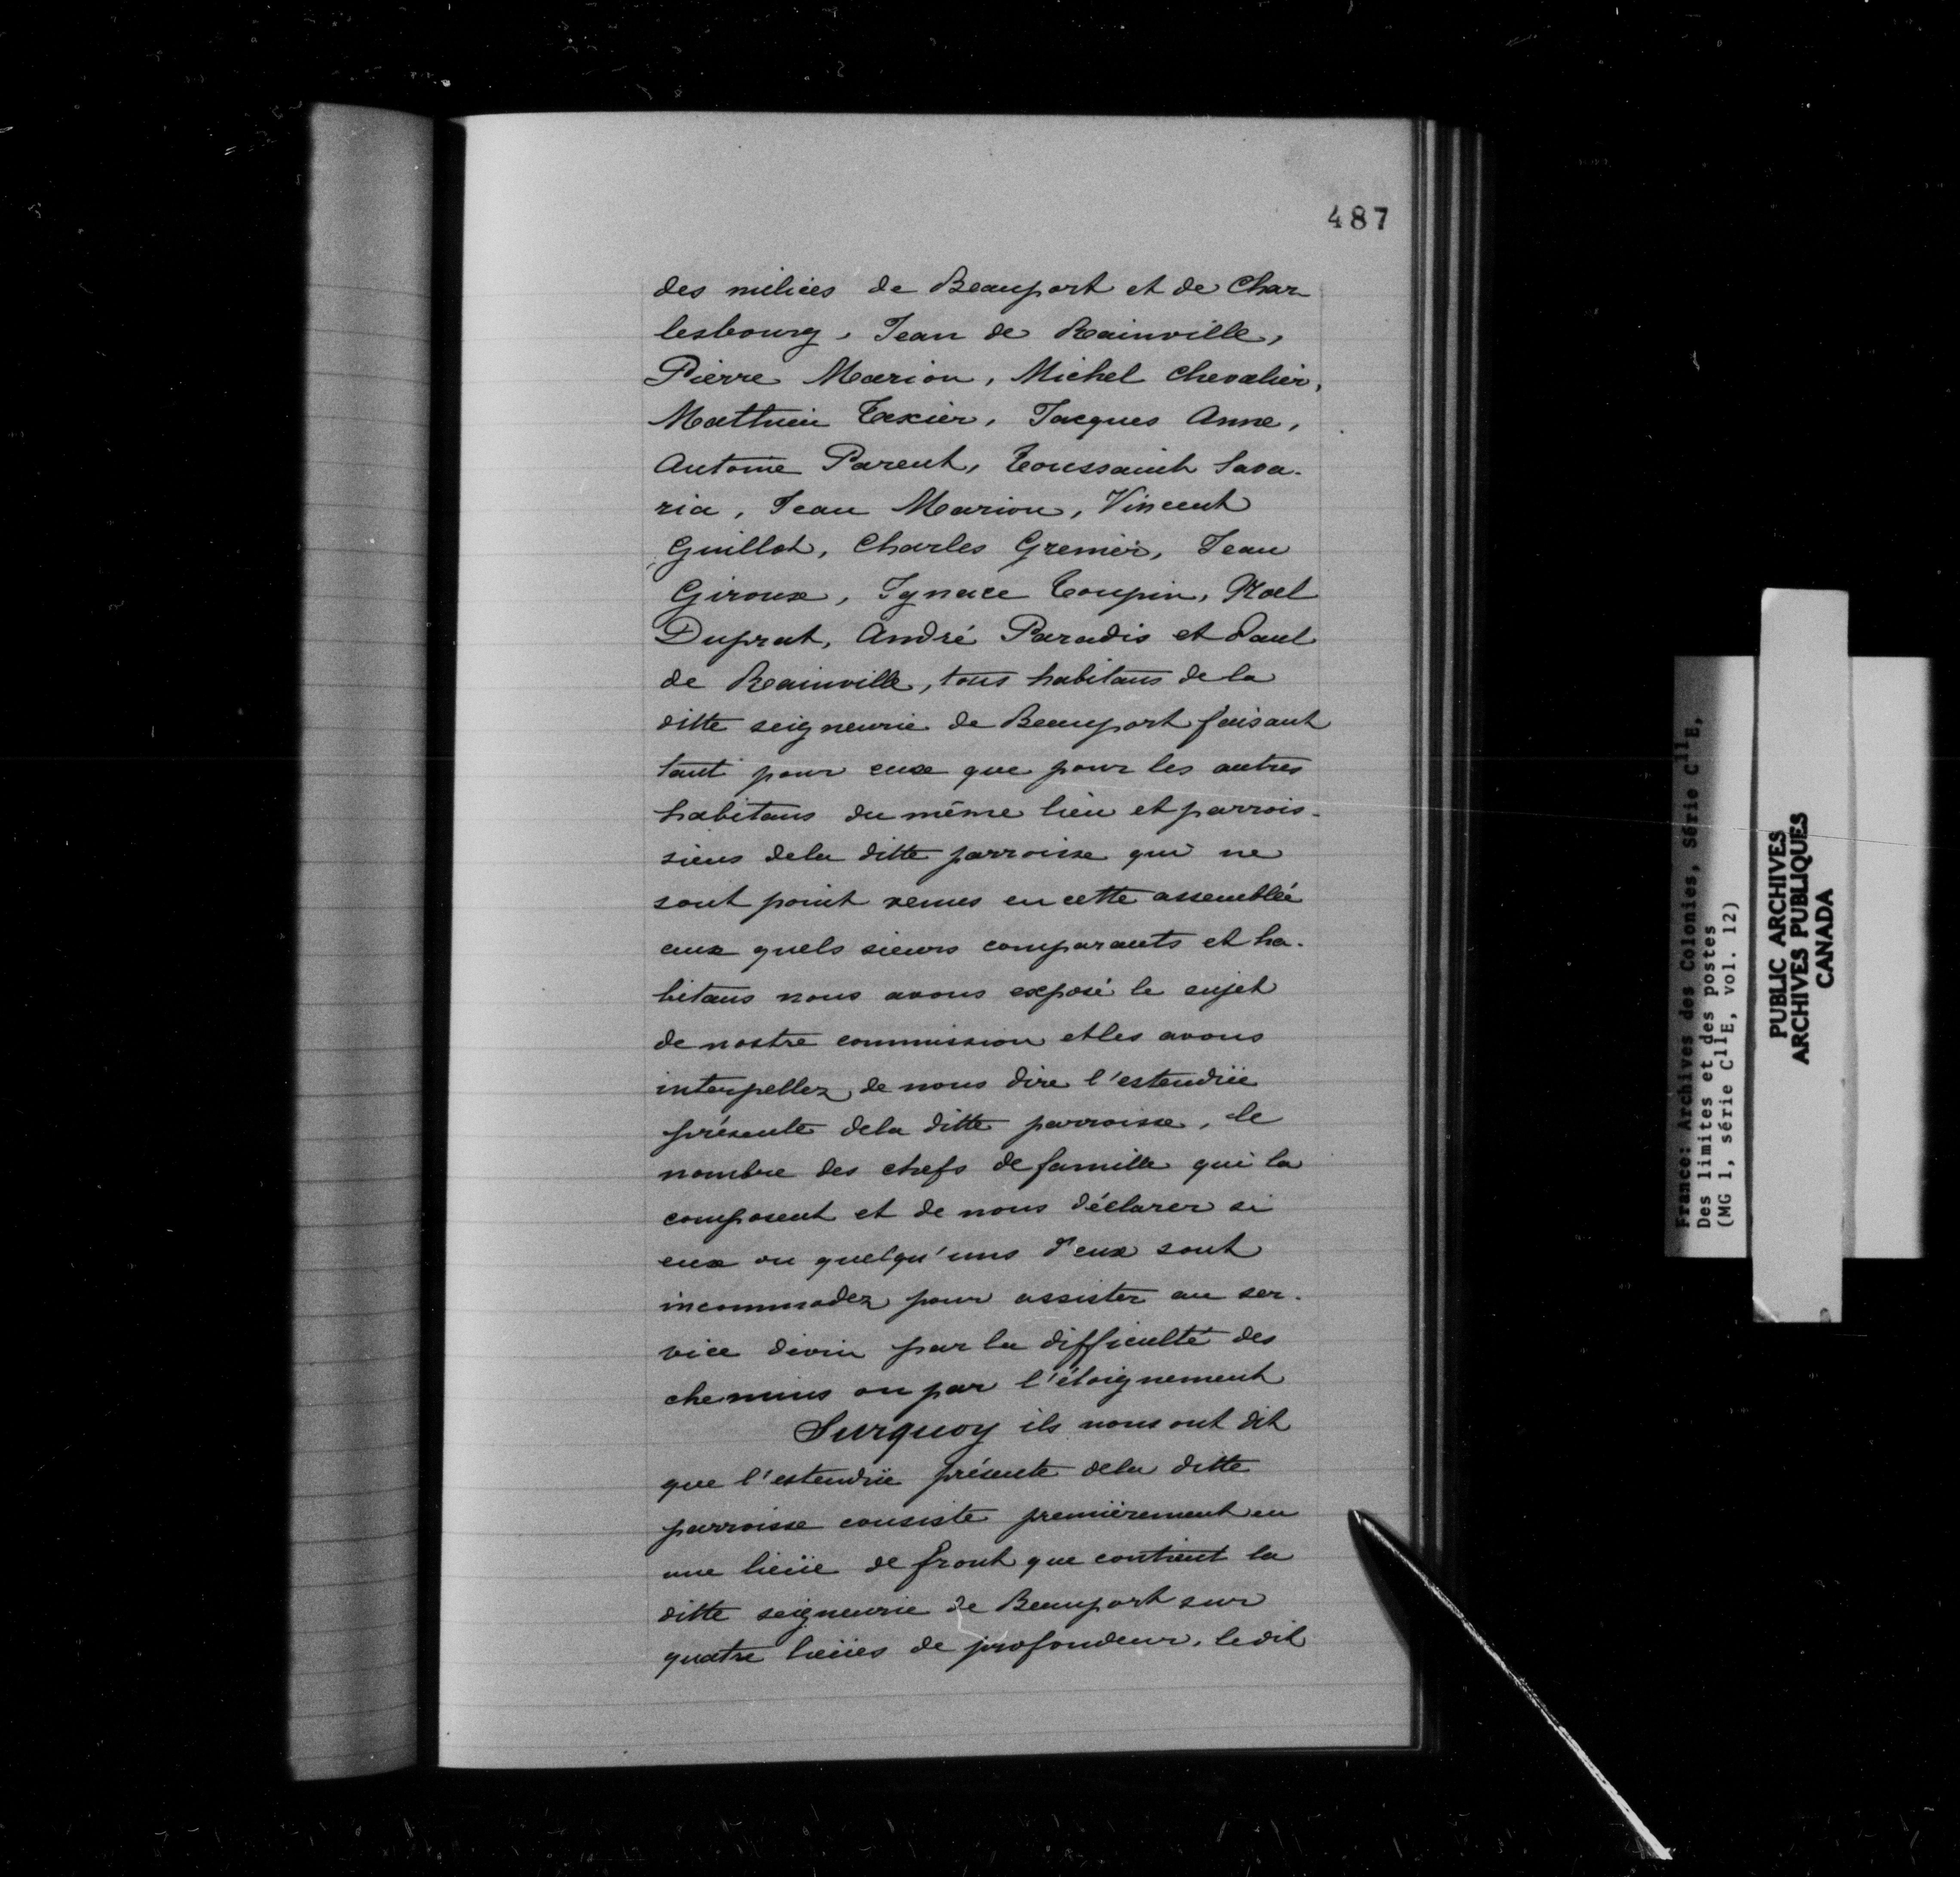 487
des milices de Beauport et de Char
lesbourg, Jean de Rainville,
Pierre Marion, Michel Chevalier,
Matthieu Texier, Jacques Anne,
Antoine Parent, Toussaint Sava-
ria, Jean Marion, Vincent
Guillot, Charles Grenier, Jean
Giroux, Ignace Toupin, Noel
Duprat, André Paradis et Paul
de Rainville, tous habitans de la
ditte seigneurie de Beauport faisant
tant pour eux que pour les autres
habitans du même lieu et parrois-
siens dela ditte parroisse qui ne
sont point venus en cette assemblée
aux quels sieurs comparants et ha-
bitans nous avons exposé le sujet
de nostre commission et les avons
interpellez de nous dire l'estendüe
présente dela ditte parroisse, le
nombre des chefs de famille qui la
composent et de nous déclarer si
eux ou quelqu'uns d'eux sont
incommodez pour assister au ser-
vice divin par la difficulté des
chemins ou par l'éloignement
Surquoy ils nous ont dit
que l'estendüe présente dela ditte
parroisse consiste premièrement en
une lieüe de front que contient la
ditte seigneurie de Beauport sur
quatre lieües de profondeur, ledit
France: Archives des Colonies, Série C11E,
Des limites et des postes
(MG 1, série C11E, vol. 12)
PUBLIC ARCHIVES
ARCHIVES PUBLIQUES
CANADA